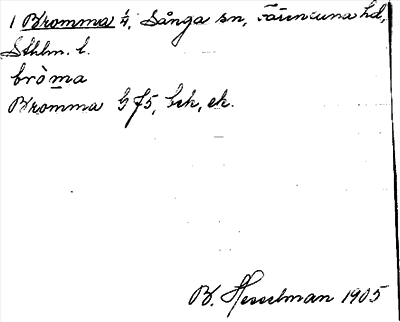 1 Bromma 1/4, Sånga sn, Färentuna hd,
Sthlm. l.
bròma
Bromma G J5, bek, ek.
B. Hesselman 1905